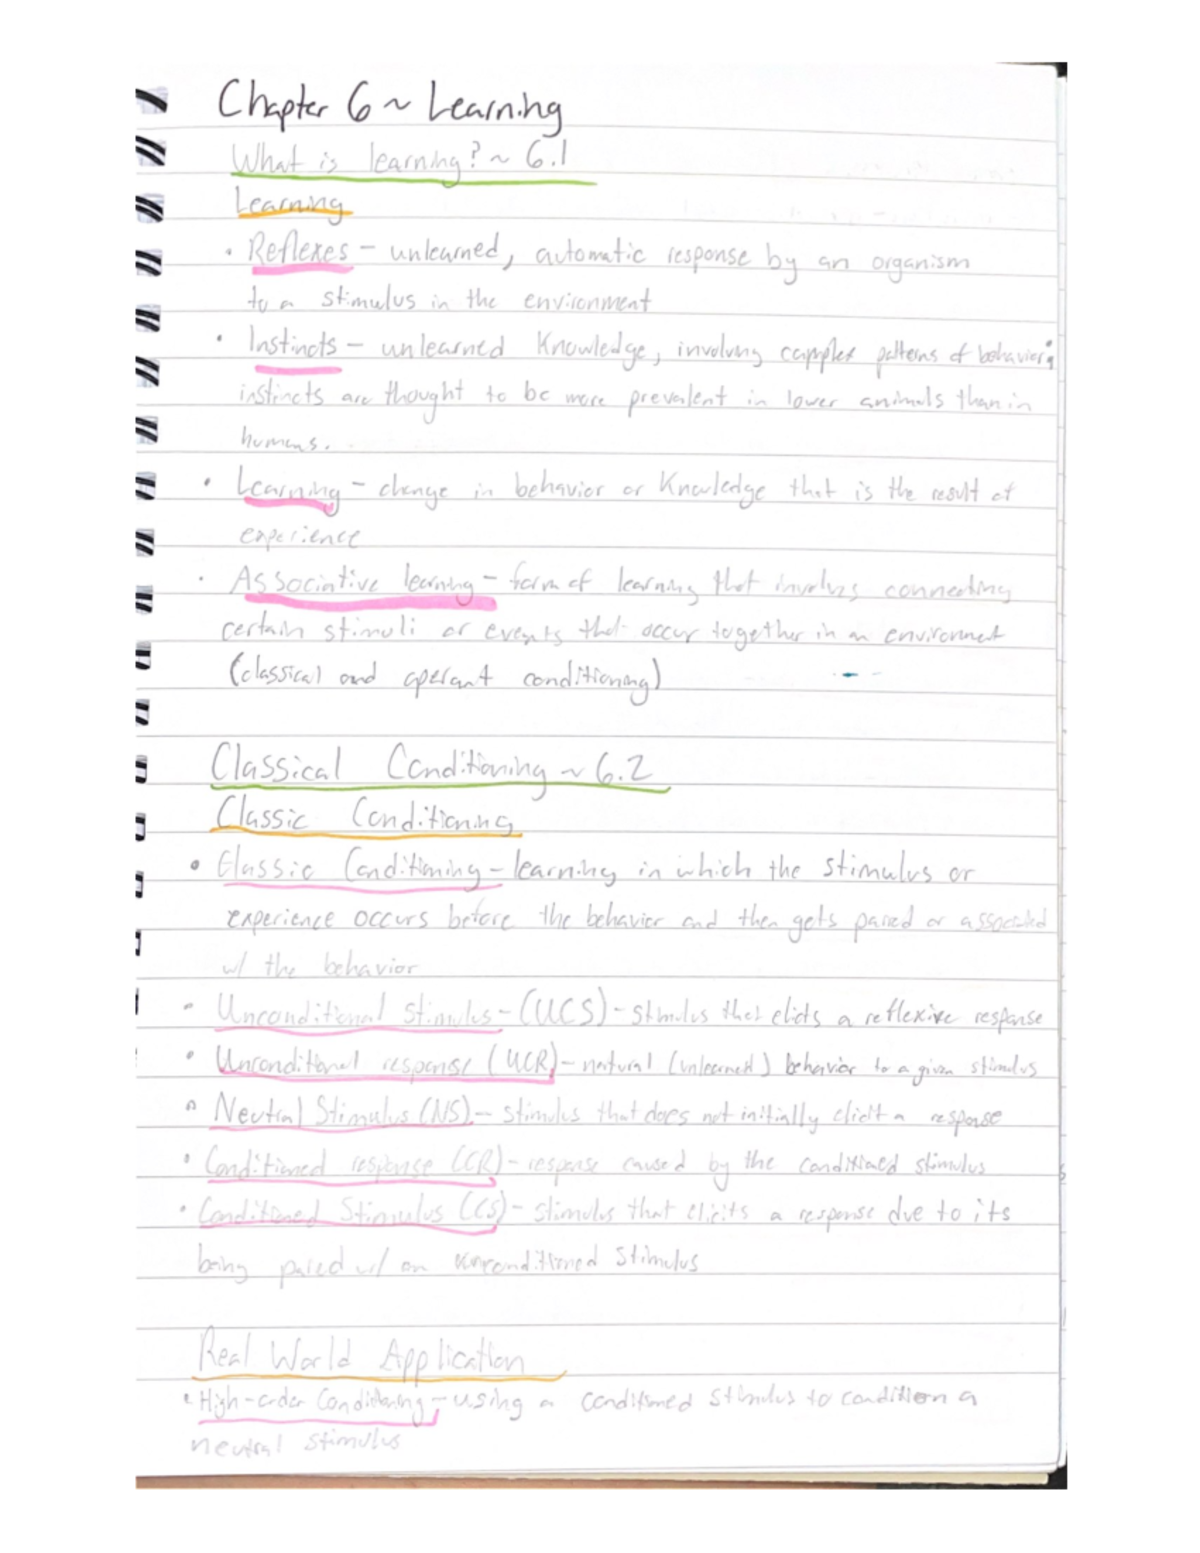 Chapter 6 ~ Learning
What is learning? ~ 6.1
Learning
• Reflexes - unlearned, automatic response by an organism
to a stimulus in the environment
• Instincts - unlearned knowledge, involving complex patterns of behavior;
instincts are thought to be more prevalent in lower animals than in
humans.
• Learning - change in behavior or knowledge that is the result of
experience
• Associative learning - form of learning that involves connecting
certain stimuli or events that occur together in an environment
(classical and operant conditioning)
Classical Conditioning ~ 6.2
Classic Conditioning
• Classic Conditioning - learning in which the stimulus or
experience occurs before the behavior and then gets paired or associated
w/ the behavior
• Unconditional stimulus - (UCS) - stimulus that elicts a reflexive response
• Unconditional response (UCR) - natural (unlearned) behavior to a given stimulus
• Neutral Stimulus (NS) - stimulus that does not initially elicit a response
• Conditioned response (CR) - response caused by the conditioned stimulus
• Conditioned Stimulus (CS) - stimulus that elicits a response due to its
being paired w/ an unconditioned stimulus
Real World Application
• High-order Conditioning - using a conditioned stimulus to condition a
neutral stimulus